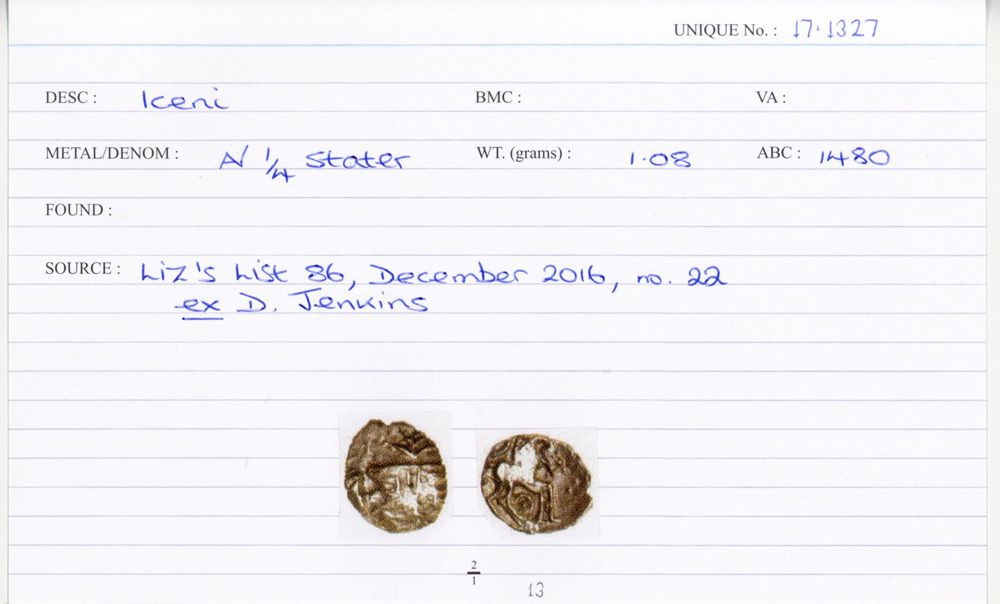 UNIQUE No. : 17.1327
DESC : Iceni BMC : VA :
METAL/DENOM : A/ 1/4 stater WT. (grams) : 1.08 ABC : 1480
FOUND :
SOURCE : Liz's List 86, December 2016, no. 22
ex D. Jenkins
2/1
13